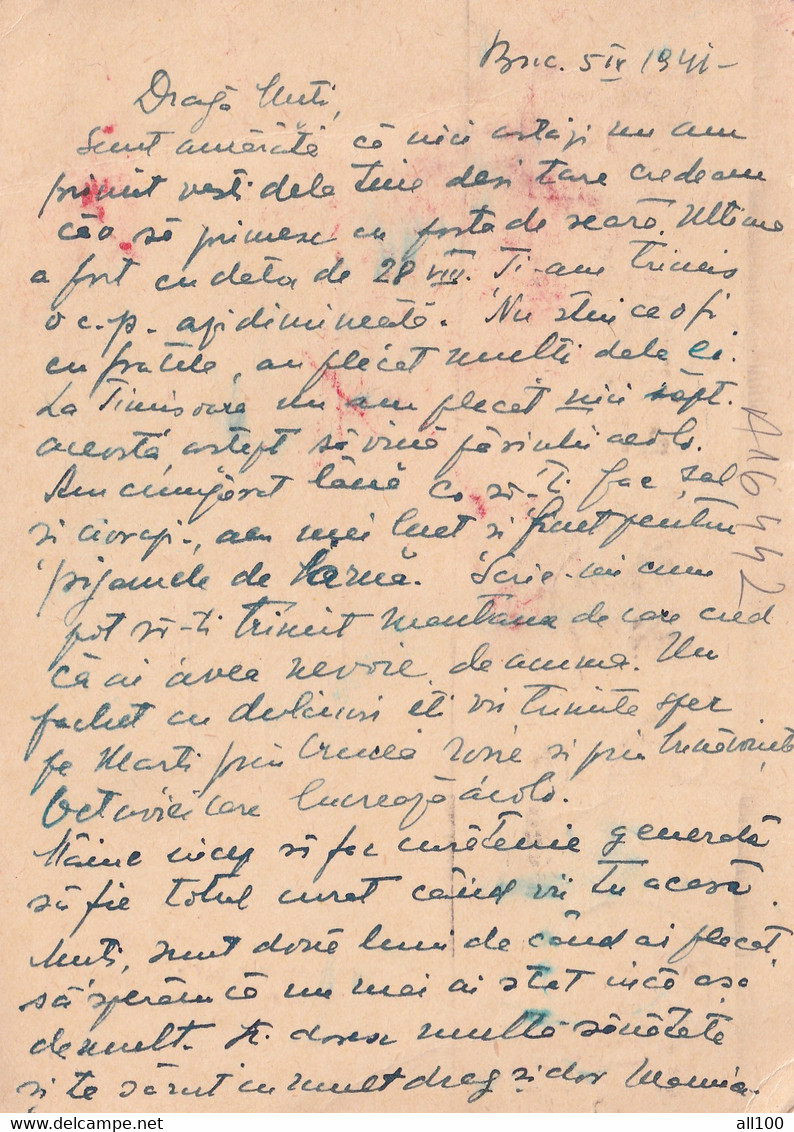 Buc. 5 IX 1941 -
Dragă Nuti,
Sunt amărâtă că nici astăzi nu am
primit vesti dela tine desi tare credeam
căo să primesc cu posta de seară. Ultima
a fost cu data de 28 VIII. Ti-am trimis
o c.p. azi dimineată. Nu stiu ce o fi
cu fratele, au plecat multi dela ei.
La Timisoara nu am plecat nici săpt.
aceasta, astept să vină păsărica acolo.
Am cumpărat lână ca să-ti fac sal
si ciorapi, am mai luat si finet pentru
pijamele de iarnă. Scrie-mi cum
pot să-ti trimit mantaua de care cred
că ai avea nevoie deamma. Un
pachet cu dulciuri iti voi trimite sper
pe Marti prin Crucea rosie si prin
care lucrează acolo.
Mâine incep să fac curătenie generală
să fie totul curat când vii tu acasă.
Nuti, sunt două luni de când ai plecat,
să sperăm că nu mai ai stat incă asa
demult. Iti doresc multă sănătate
si te sărut cu mult drag si dor
A16442
all100